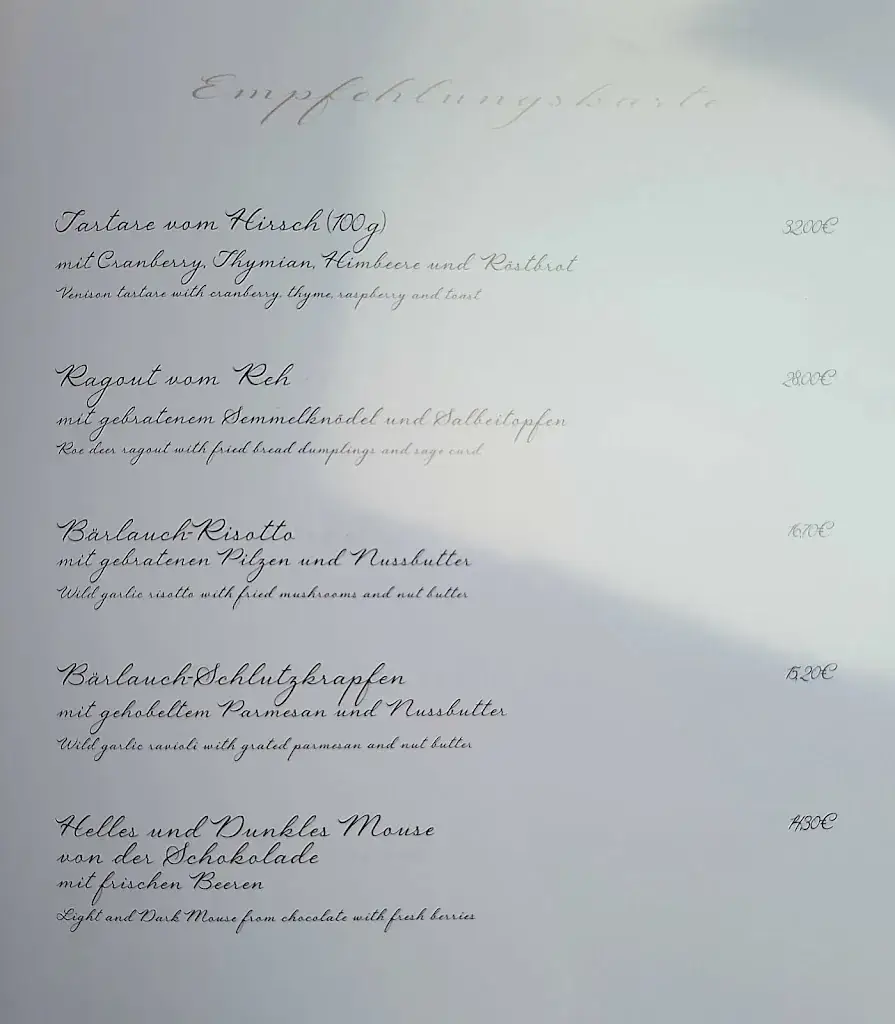 Empfehlungskarte
Tartare vom Hirsch (100 g) 32,00€
mit Cranberry, Thymian, Himbeere und Röstbrot
Venison tartare with cranberry, thyme, raspberry and toast
Ragout vom Reh 28,00€
mit gebratenem Semmelknödel und Salbeitopfen
Roe deer ragout with fried bread dumplings and sage curd
Bärlauch-Risotto 16,70€
mit gebratenen Pilzen und Nussbutter
Wild garlic risotto with fried mushrooms and nut butter
Bärlauch-Schlutzkrapfen 15,20€
mit gehobeltem Parmesan und Nussbutter
Wild garlic ravioli with grated parmesan and nut butter
Helles und Dunkles Mouse 14,30€
von der Schokolade
mit frischen Beeren
Light and Dark Mouse from chocolate with fresh berries